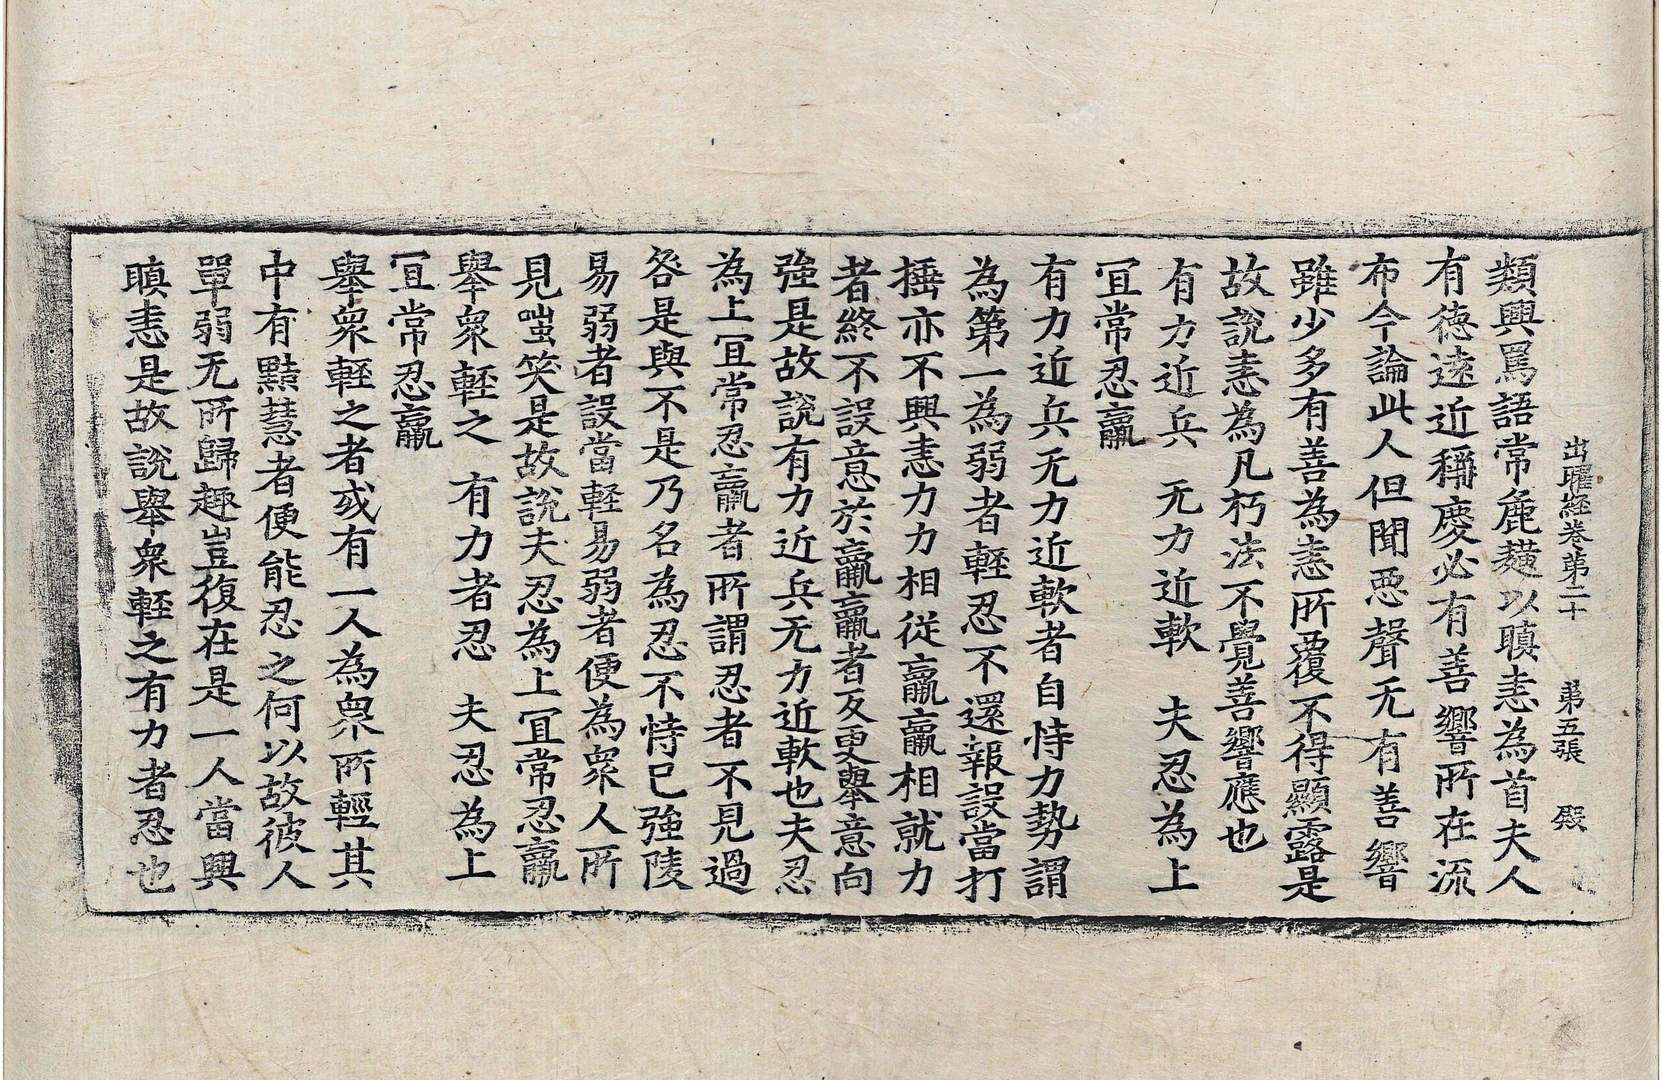 出曜經卷第二十　第五張　殿
類興罵語常麁獷以瞋恚為首夫人
有德遠近稱慶必有善響所在流
布今論此人但聞惡聲无有善響
雖少多有善為恚所覆不得顯露是
故說恚為凡朽法不覺善響應也
有力近兵　无力近軟　夫忍為上
冝常忍羸
有力近兵无力近軟者自恃力勢謂
為第一為弱者輕忍不還報設當打
捶亦不興恚力力相從羸羸相就力
者終不設意於羸羸者反更舉意向
強是故說有力近兵无力近軟也夫忍
為上冝常忍羸者所謂忍者不見過
咎是與不是乃名為忍不恃己強陵
易弱者設當輕易弱者便為衆人所
見嗤笑是故說夫忍為上冝常忍羸
舉衆輕之　有力者忍　夫忍為上
冝常忍羸
舉衆輕之者或有一人為衆所輕其
中有黠慧者便能忍之何以故彼人
單弱无所歸趣豈復在是一人當興
瞋恚是故說舉衆輕之有力者忍也